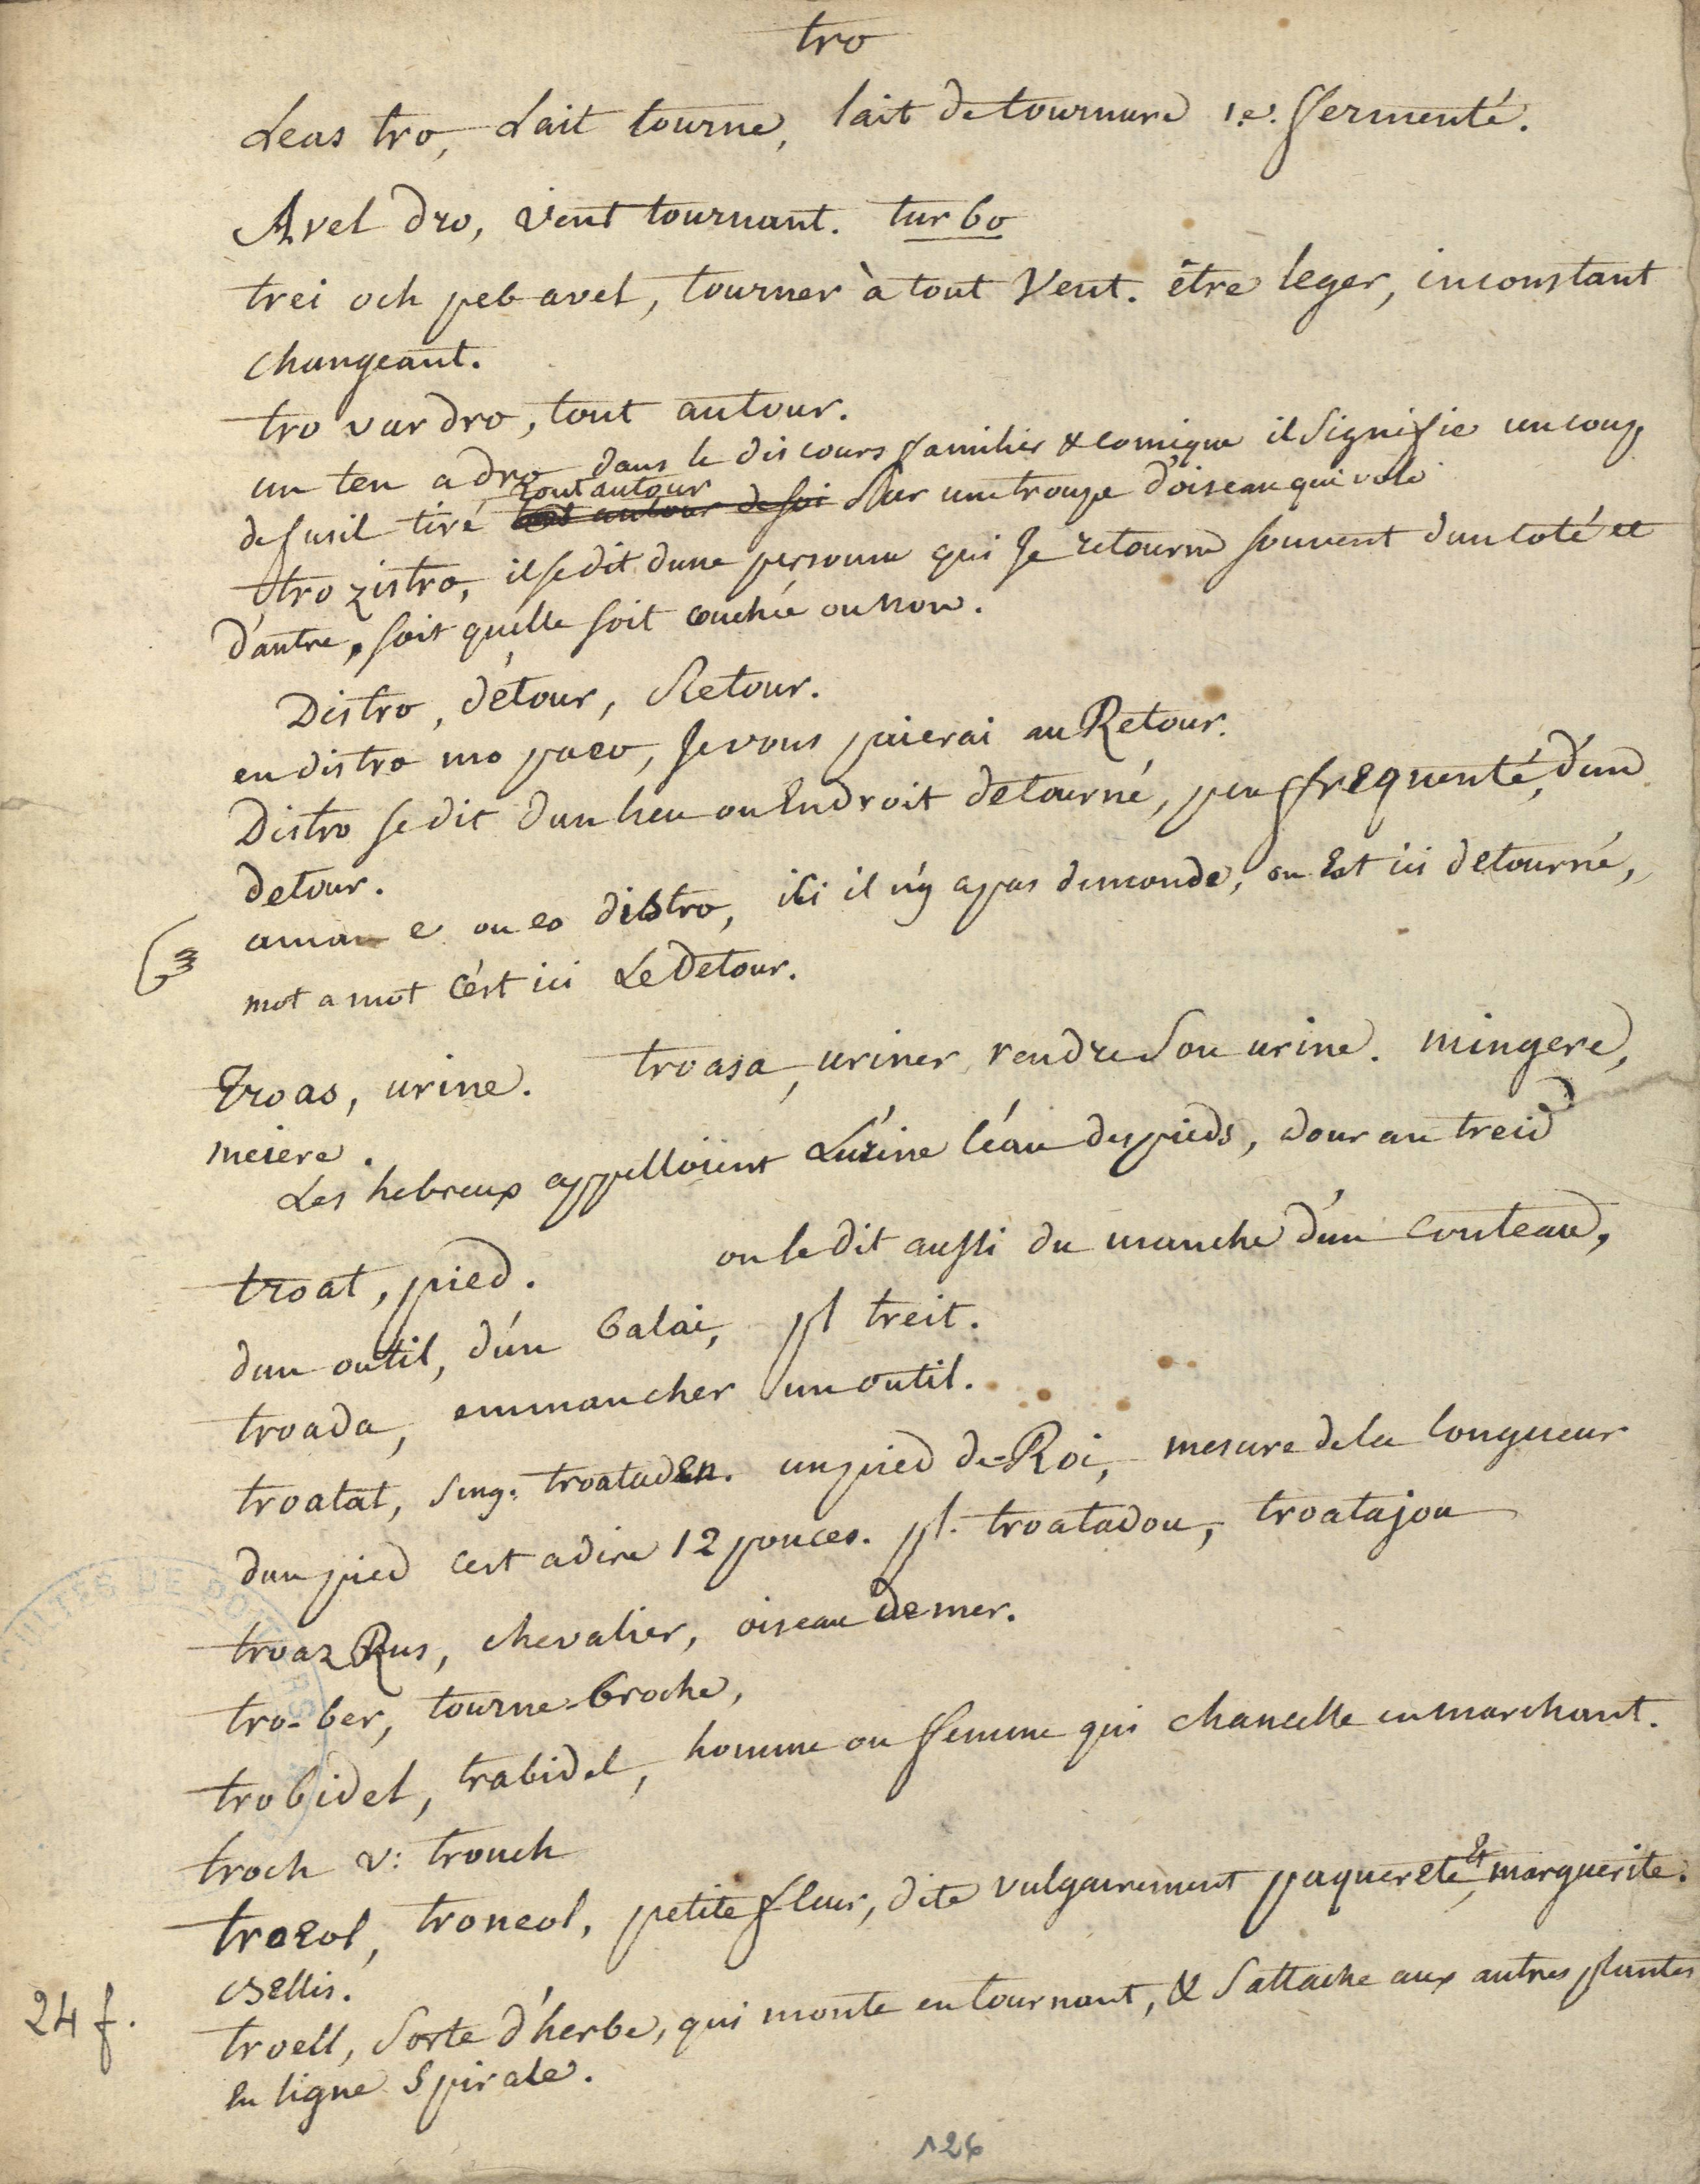 tro
Leas tro, Lait tourne, lait de tournure i.e. fermenté.
Avel dro, vent tournant. turbo
trei och peb avel, tourner à tout Vent. être leger, inconstant
changeant.
tro var dro, tout autour.
un ten a dro dans le discours familier & comique il signifie un coup
de fusil tiré tout autour tout autour de soi sur une troupe d'oiseau qui vole
tro zistro, il se dit dune personne qui se retourne souvent dun coté et
d'autre, soit qu'elle soit couchée ou non.
Distro, détour, Retour.
en distro mo paeo, Je vous paierai au Retour.
Distro se dit dun lieu ou Endroit detourné, peu frequenté, d'un
detour.
aman e ou eo distro, ici il n'y a pas de monde, on Est ici detourné,
mot a mot c'est ici Le Detour.
troas, urine. troasa, uriner, rendre Son urine. mingere,
meiere.
Les hebreux appelloient L'urine l'eau des pieds, dour an treid
troat, pied. on le dit aussi du manche d'un couteau,
dun outil, d'un balai, pl treit.
troada, emmancher un outil.
troatat, sing. troataden. un pied de Roi, mesure de la longueur
dun pied cest adire 12 pouces. pl. troatadou, troatajou
troaz Rus, chevalier, oiseau de mer.
tro-ber, tourne-broche,
trobidel, trabidel, homme ou femme qui chancelle en marchant.
troch v: trouch
troeol, troneol, petite fleur, dite vulgairement paquerete, et marguerite.
Bellis.
troell, Sorte d'herbe, qui monte en tournant, & S'attache aux autres plantes
En ligne Spirale.
24 f.
126